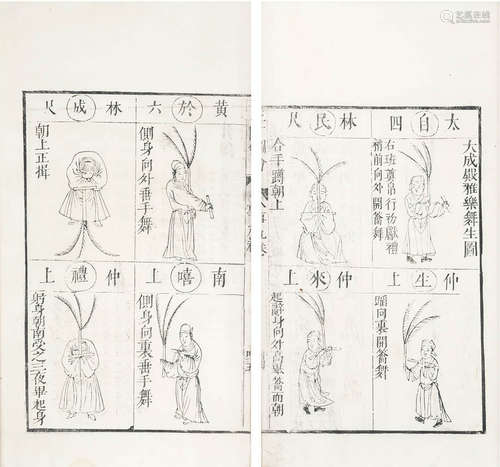 大成嚴雅樂舞生圖
太自四
右班尊帛行初獻禮
稍前向外開籥舞
林民尺
合手蹲朝上
仲生上
蹈向裏開籥舞
仲來上
黃於六
側身向外垂手舞
林成尺
朝上正揖
南嘻上
側身向裏垂手舞
仲禮上
躬身朝南受之三
畢起身